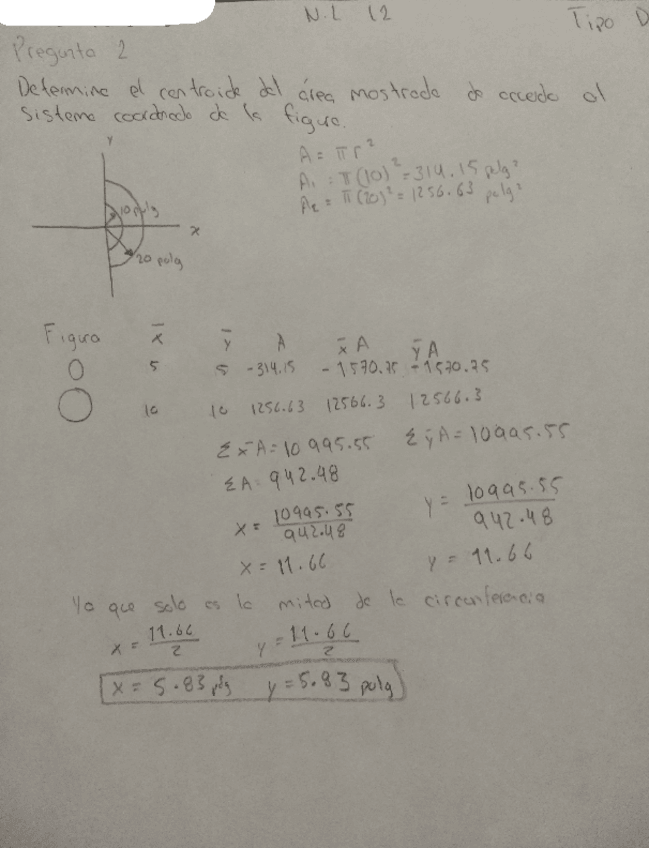 N.L 12 Tipo D
Pregunta 2
Determine el centroide del área mostrada de acuerdo al
sistema coordnado de la figura.
y
A = πr²
A₁ = π(10)² = 314.15 pulg²
A₂ = π(20)² = 1256.63 pulg²
10 pulg
x
20 pulg
Figura x̄ ȳ A x̄A ȳA
5 5 -314.15 -1570.75 -1570.75
10 10 1256.63 12566.3 12566.3
Σx̄A = 10995.55 ΣȳA = 10995.55
ΣA = 942.48
x = 10995.55/942.48 y = 10995.55/942.48
x = 11.66 y = 11.66
Ya que solo es la mitad de la circunferencia
x = 11.66/2 y = 11.66/2
x = 5.83 plg y = 5.83 pulg